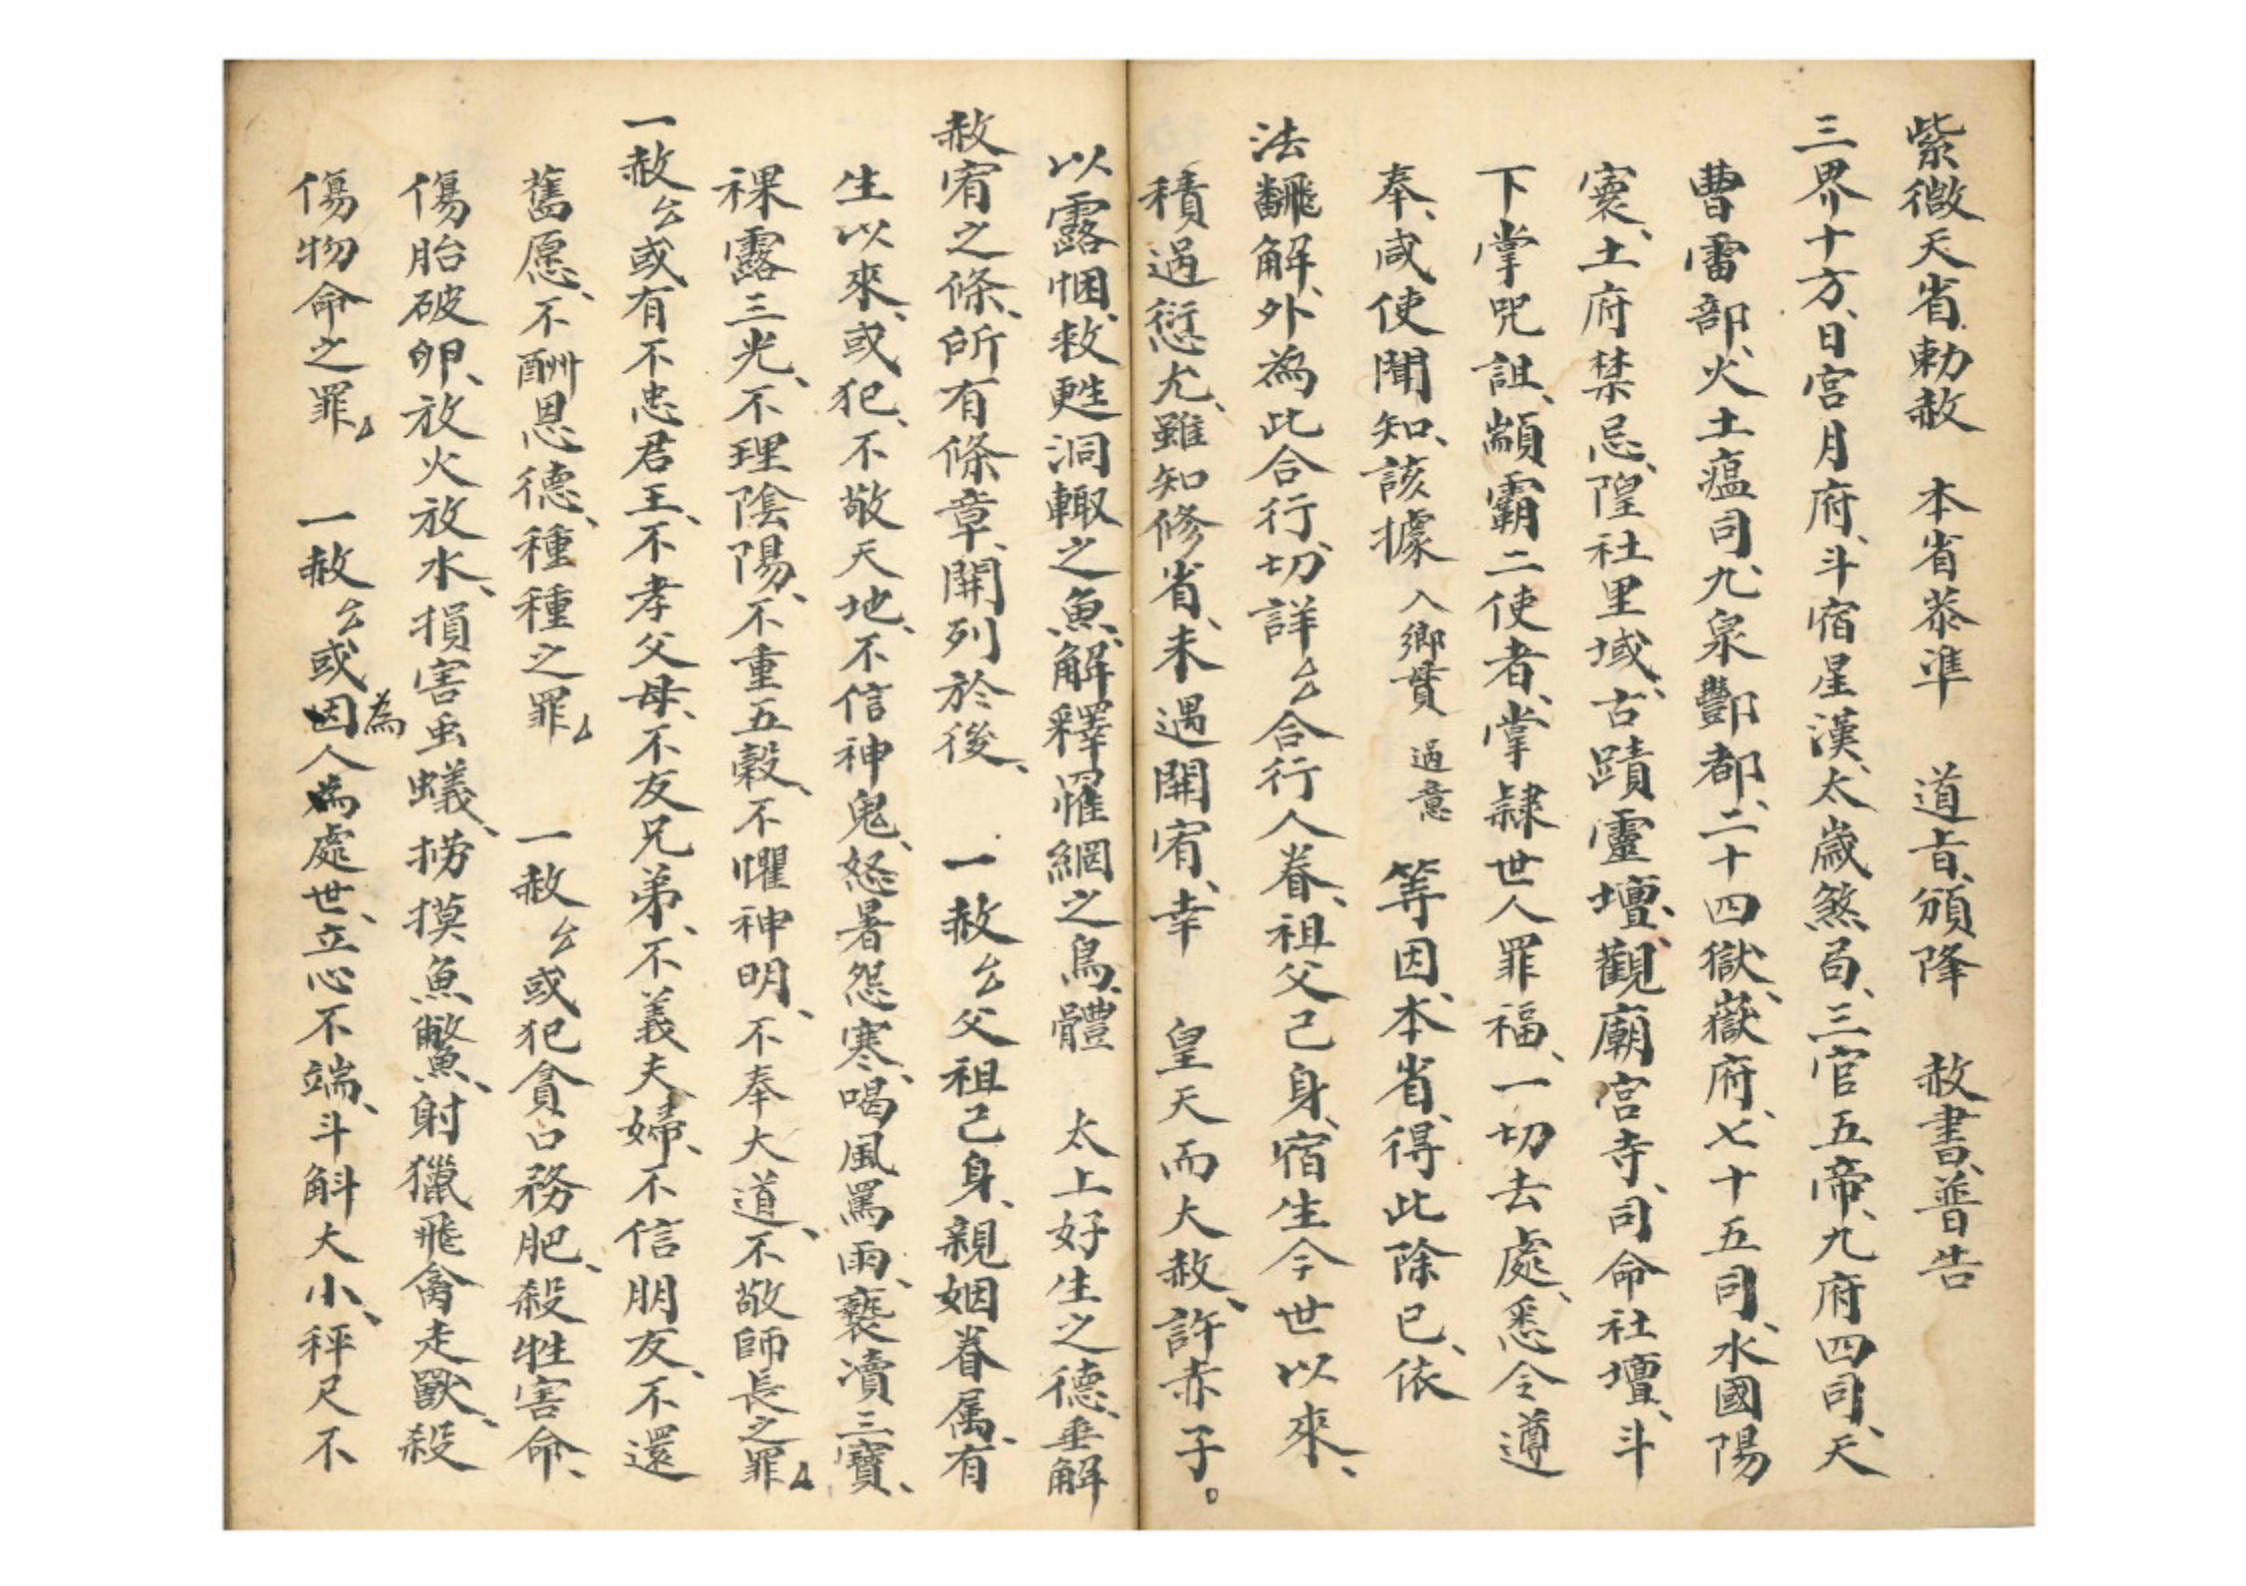 紫微天省勅赦　本省恭準　道旨、頒降　赦書、普告
三界十方、日宮月府、斗宿星漢、太歲煞局、三官五帝、九府四司、天
曹雷部、火土瘟司、九泉酆都、二十四獄、嶽府、七十五司、水國陽
寰、土府禁忌、隍社里域、古蹟靈壇、觀廟宮寺、司命社壇、斗
下掌咒詛、顓霸二使者、掌隸世人罪福、一切去處、悉令遵
奉、咸使聞知、該據　入鄉貫　過意　等因、本省、得此除已、依
法翻解、外為此合行、切詳厶合行人眷、祖父己身、宿生今世以來、
積過愆尤、雖知修省、未遇開宥、幸　皇天而大赦、許赤子。
以露悃、救甦洞轍之魚、解釋罹網之鳥、體　太上好生之德、垂解
赦宥之條、所有條章、開列於後、　一赦厶父祖己身、親姻眷属、有
生以來、或犯、不敬天地、不信神鬼、怒暑怨寒、喝風罵雨、褻瀆三寶、
裸露三光、不理陰陽、不重五穀、不懼神明、不奉大道、不敬師長之罪
一赦厶或有不忠君王、不孝父母、不友兄弟、不義夫婦、不信朋友、不還
舊愿、不酬恩德、種種之罪　一赦厶或犯貪口務肥、殺牲害命、
傷胎破卵、放火放水、損害虫蟻、撈摸魚鱉、射獵飛禽走獸、殺
傷物命之罪　一赦厶或因為人處世、立心不端、斗斛大小、秤尺不